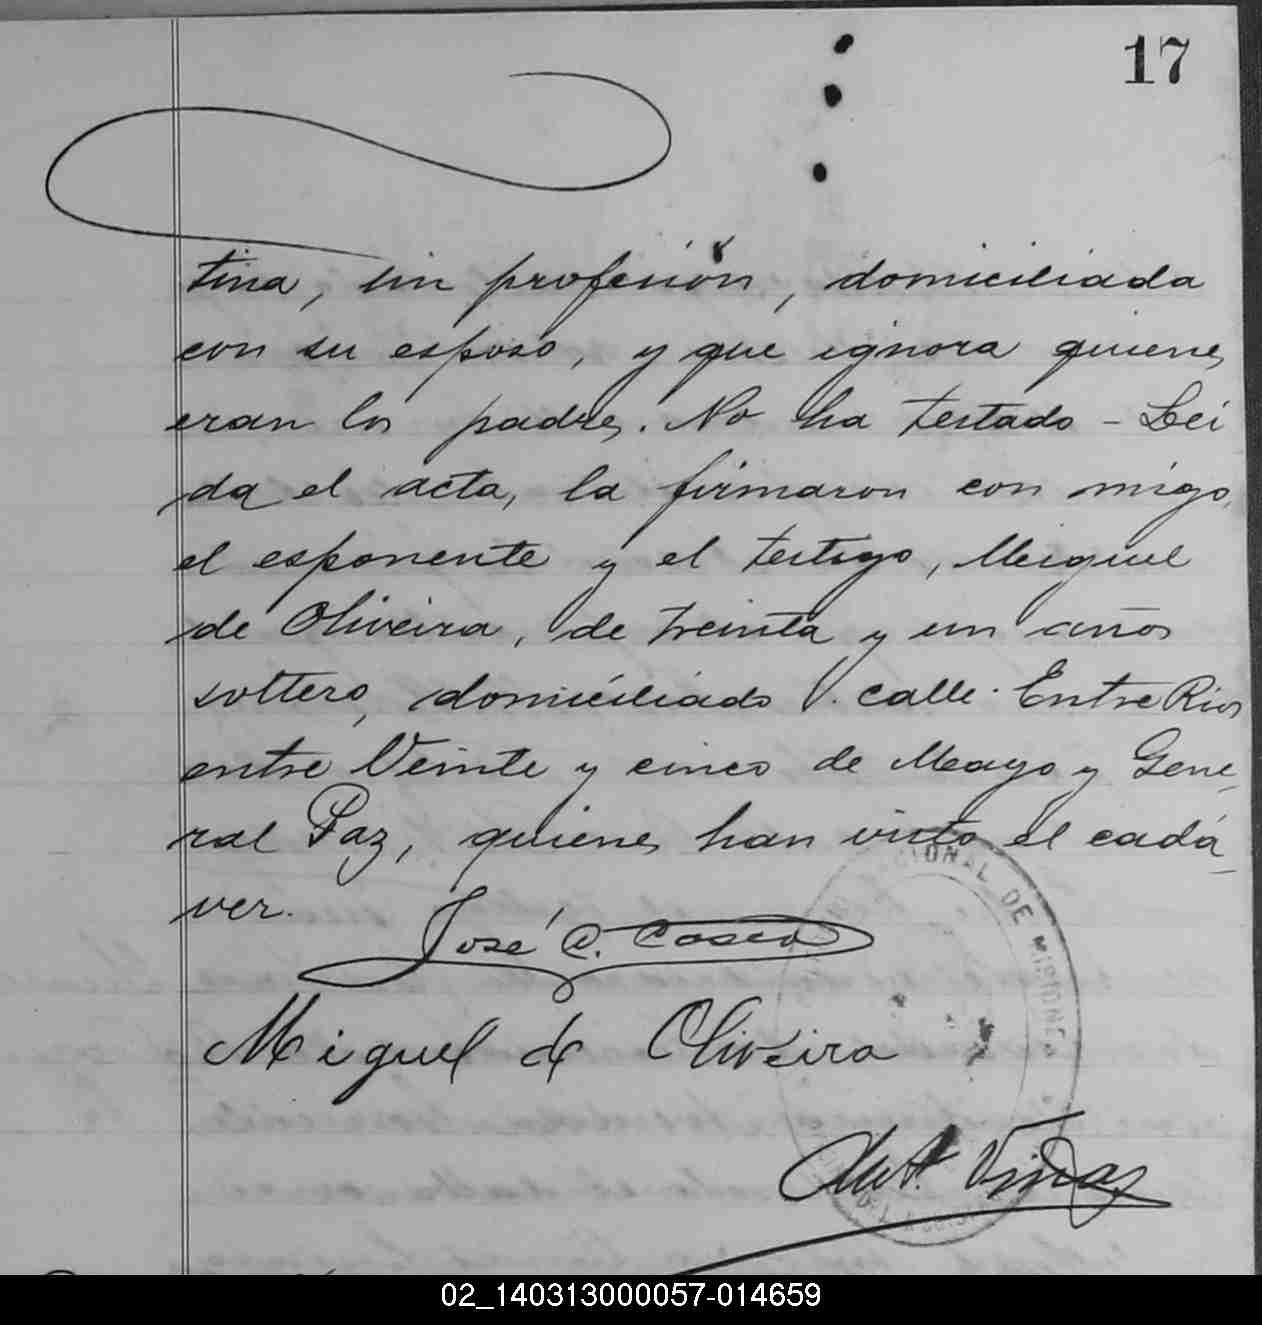 17
tina, sin profesión, domiciliada
con su esposo, y que ignora quienes
eran los padres. No ha testado - Lei
da el acta, la firmaron con migo,
el esponente y el testigo, Meiguel
de Oliveira, de treinta y un años
soltero, domiciliado calle Entre Rios
entre Veinte y cinco de Mayo y Gene-
ral Paz, quienes han visto el cadá-
ver.
José C. Casco
Miguel de Oliveira
CIONAL DE MISIONES
02_140313000057-014659